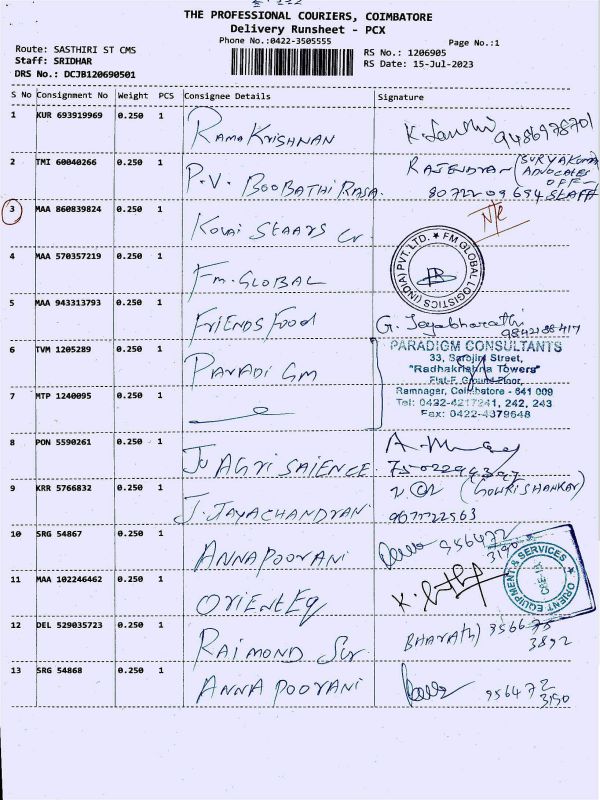 THE PROFESSIONAL COURIERS, COIMBATORE
Delivery Runsheet - PCX
Phone No.:0422-3505555
Page No.:1
Route: SASTHIRI ST CMS
RS No.: 1206905
Staff: SRIDHAR
RS Date: 15-Jul-2023
DRS No.: DCJB120690501
S No Consignment No Weight PCS Consignee Details Signature
1 KUR 693919969 0.250 1 RAMA KRISHNAN 9486978701
2 TMI 60040266 0.250 1 P.V. BOOBATHI RAJA. RAJENDRAN (SURYAKUMAR
ADVOCATES
OFF-
8072209694 STAFF)
3 MAA 860839824 0.250 1 KOVAI STAARS Cr N/c
4 MAA 570357219 0.250 1 FM. GLOBAL
FM GLOBAL LOGISTICS (INDIA) PVT. LTD.
5 MAA 943313793 0.250 1 FRIENDS FOOD G. Jeyabharathi
9842188417
6 TVM 1205289 0.250 1 PARADI GM
PARADIGM CONSULTANTS
33, Sarojini Street,
"Radhakrishna Towers"
Flat-F, Ground Floor,
Ramnagar, Coimbatore - 641 009
Tel: 0422-4217241, 242, 243
Fax: 0422-4379648
7 MTP 1240095 0.250 1
8 PON 5590261 0.250 1 JU AGRI SAIENCE
9 KRR 5766832 0.250 1 J. JAYACHANDRAN (GOWRISHANKAR)
9677722563
10 SRG 54867 0.250 1 ANNAPOORANI 956472
3190
11 MAA 102246462 0.250 1 ORIENT EQ
ORIENT EQUIPMENT & SERVICES
CBE-18
12 DEL 529035723 0.250 1 RAIMOND BHARATH) 956675
3892
13 SRG 54868 0.250 1 ANNA POORANI 956472
3190